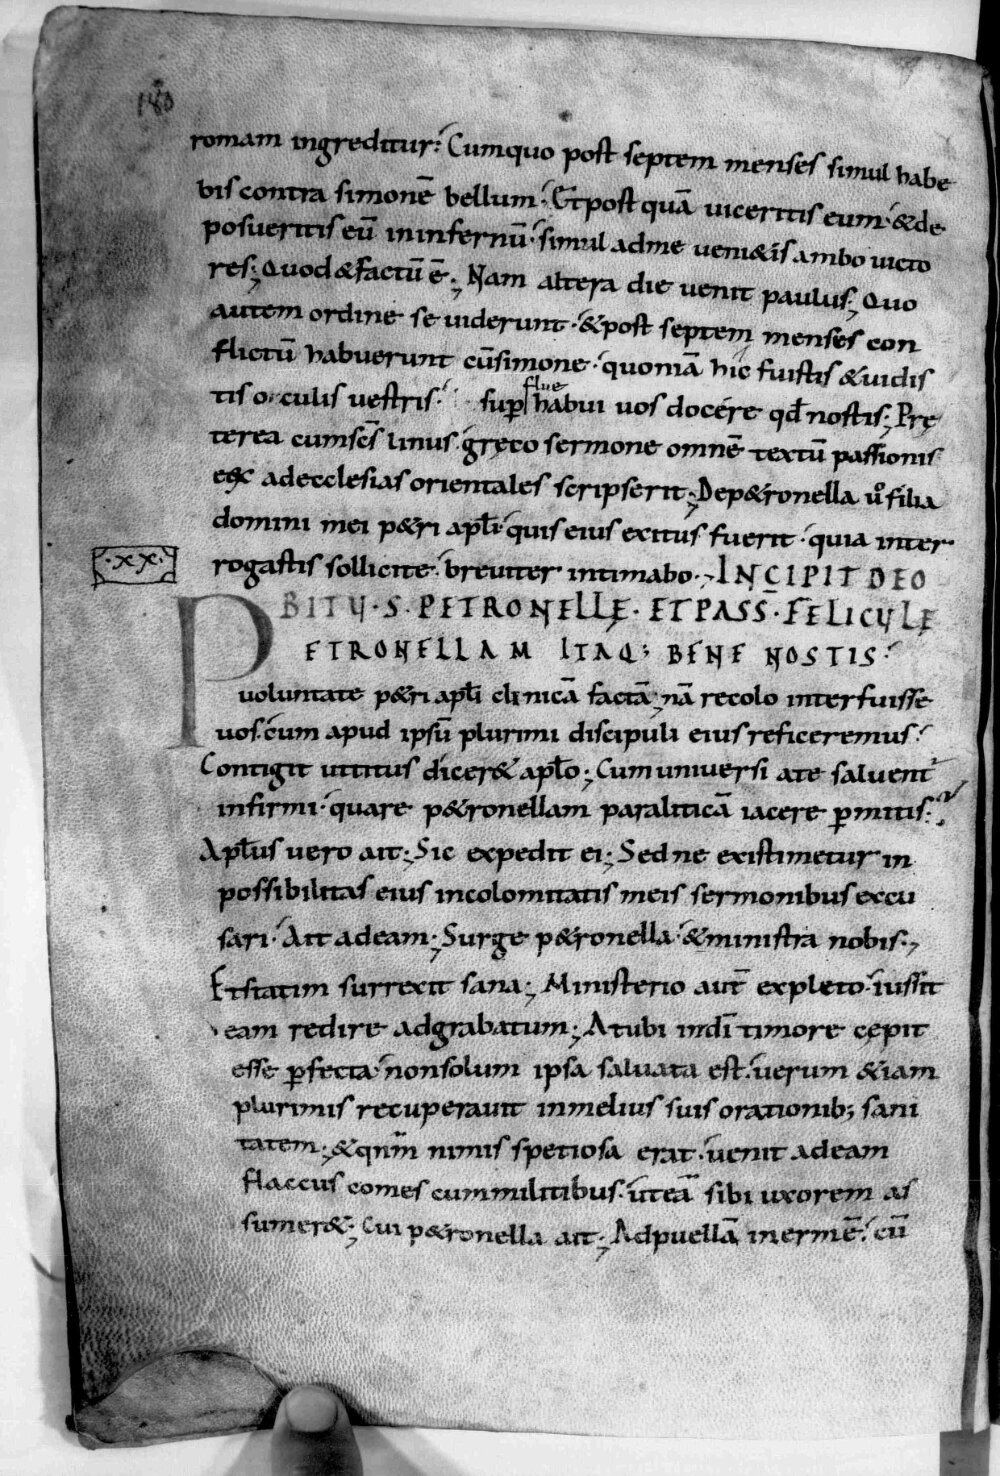 180
romam ingreditur; Cumquo post septem menses simul habe
bis contra simonē bellum · Et post quā uiceritis eum · & de
posueritis eū in infernū · simul ad me ueni&is ambo uicto
res; Quod & factū ē; Nam altera die uenit paulus; Quo
autem ordine se uiderunt · & post septem menses con
flictū habuerunt cū simone · quoniā hic fuistis & uidis
tis oculis uestris · suꝑflue habui uos docere qđ nostis; Prę
terea cum scs̄ linus gręco sermone omnē textū passionis
eoꝝ ad ecclesias orientales scripserit; De p&ronella u͛o filia
domini mei p&ri apłi quis eius exitus fuerit · quia inter
·XX· rogastis sollicite · breuiter intimabo · INCIPIT DE O
BITU · S · PETRONELLĘ · ET PASS̄ · FELICULĘ
PETRONELLAM ITAQ; BENE NOSTIS ·
uoluntate p&ri apłi clinicā factā; nā recolo interfuisse
uos · cum apud ipsū plurimi discipuli eius reficeremus ·
Contigit ut titus dicer& apło; Cum uniuersi a te saluent᷑
infirmi · quare p&ronellam paraliticā iacere ꝑmitis?
Apłus uero ait; Sic expedit ei; Sed ne existimetur in
possibilitas eius incolomitatis meis sermonibus excu
sari · Ait ad eam; Surge p&ronella · & ministra nobis ·
Et statim surrexit sana; Ministerio aut̄ expleto · iussit
eam redire ad grabatum; At ubi in dī timore cępit
esse ꝑfecta · non solum ipsa saluata est · uerum & iam
plurimis recuperauit in melius suis orationib; sani
tatem; & qn̄m nimis spetiosa erat · uenit ad eam
flaccus comes cum militibus · ut eā sibi uxorem as
sumer&; Cui p&ronella ait; Ad puellā inermē · cū